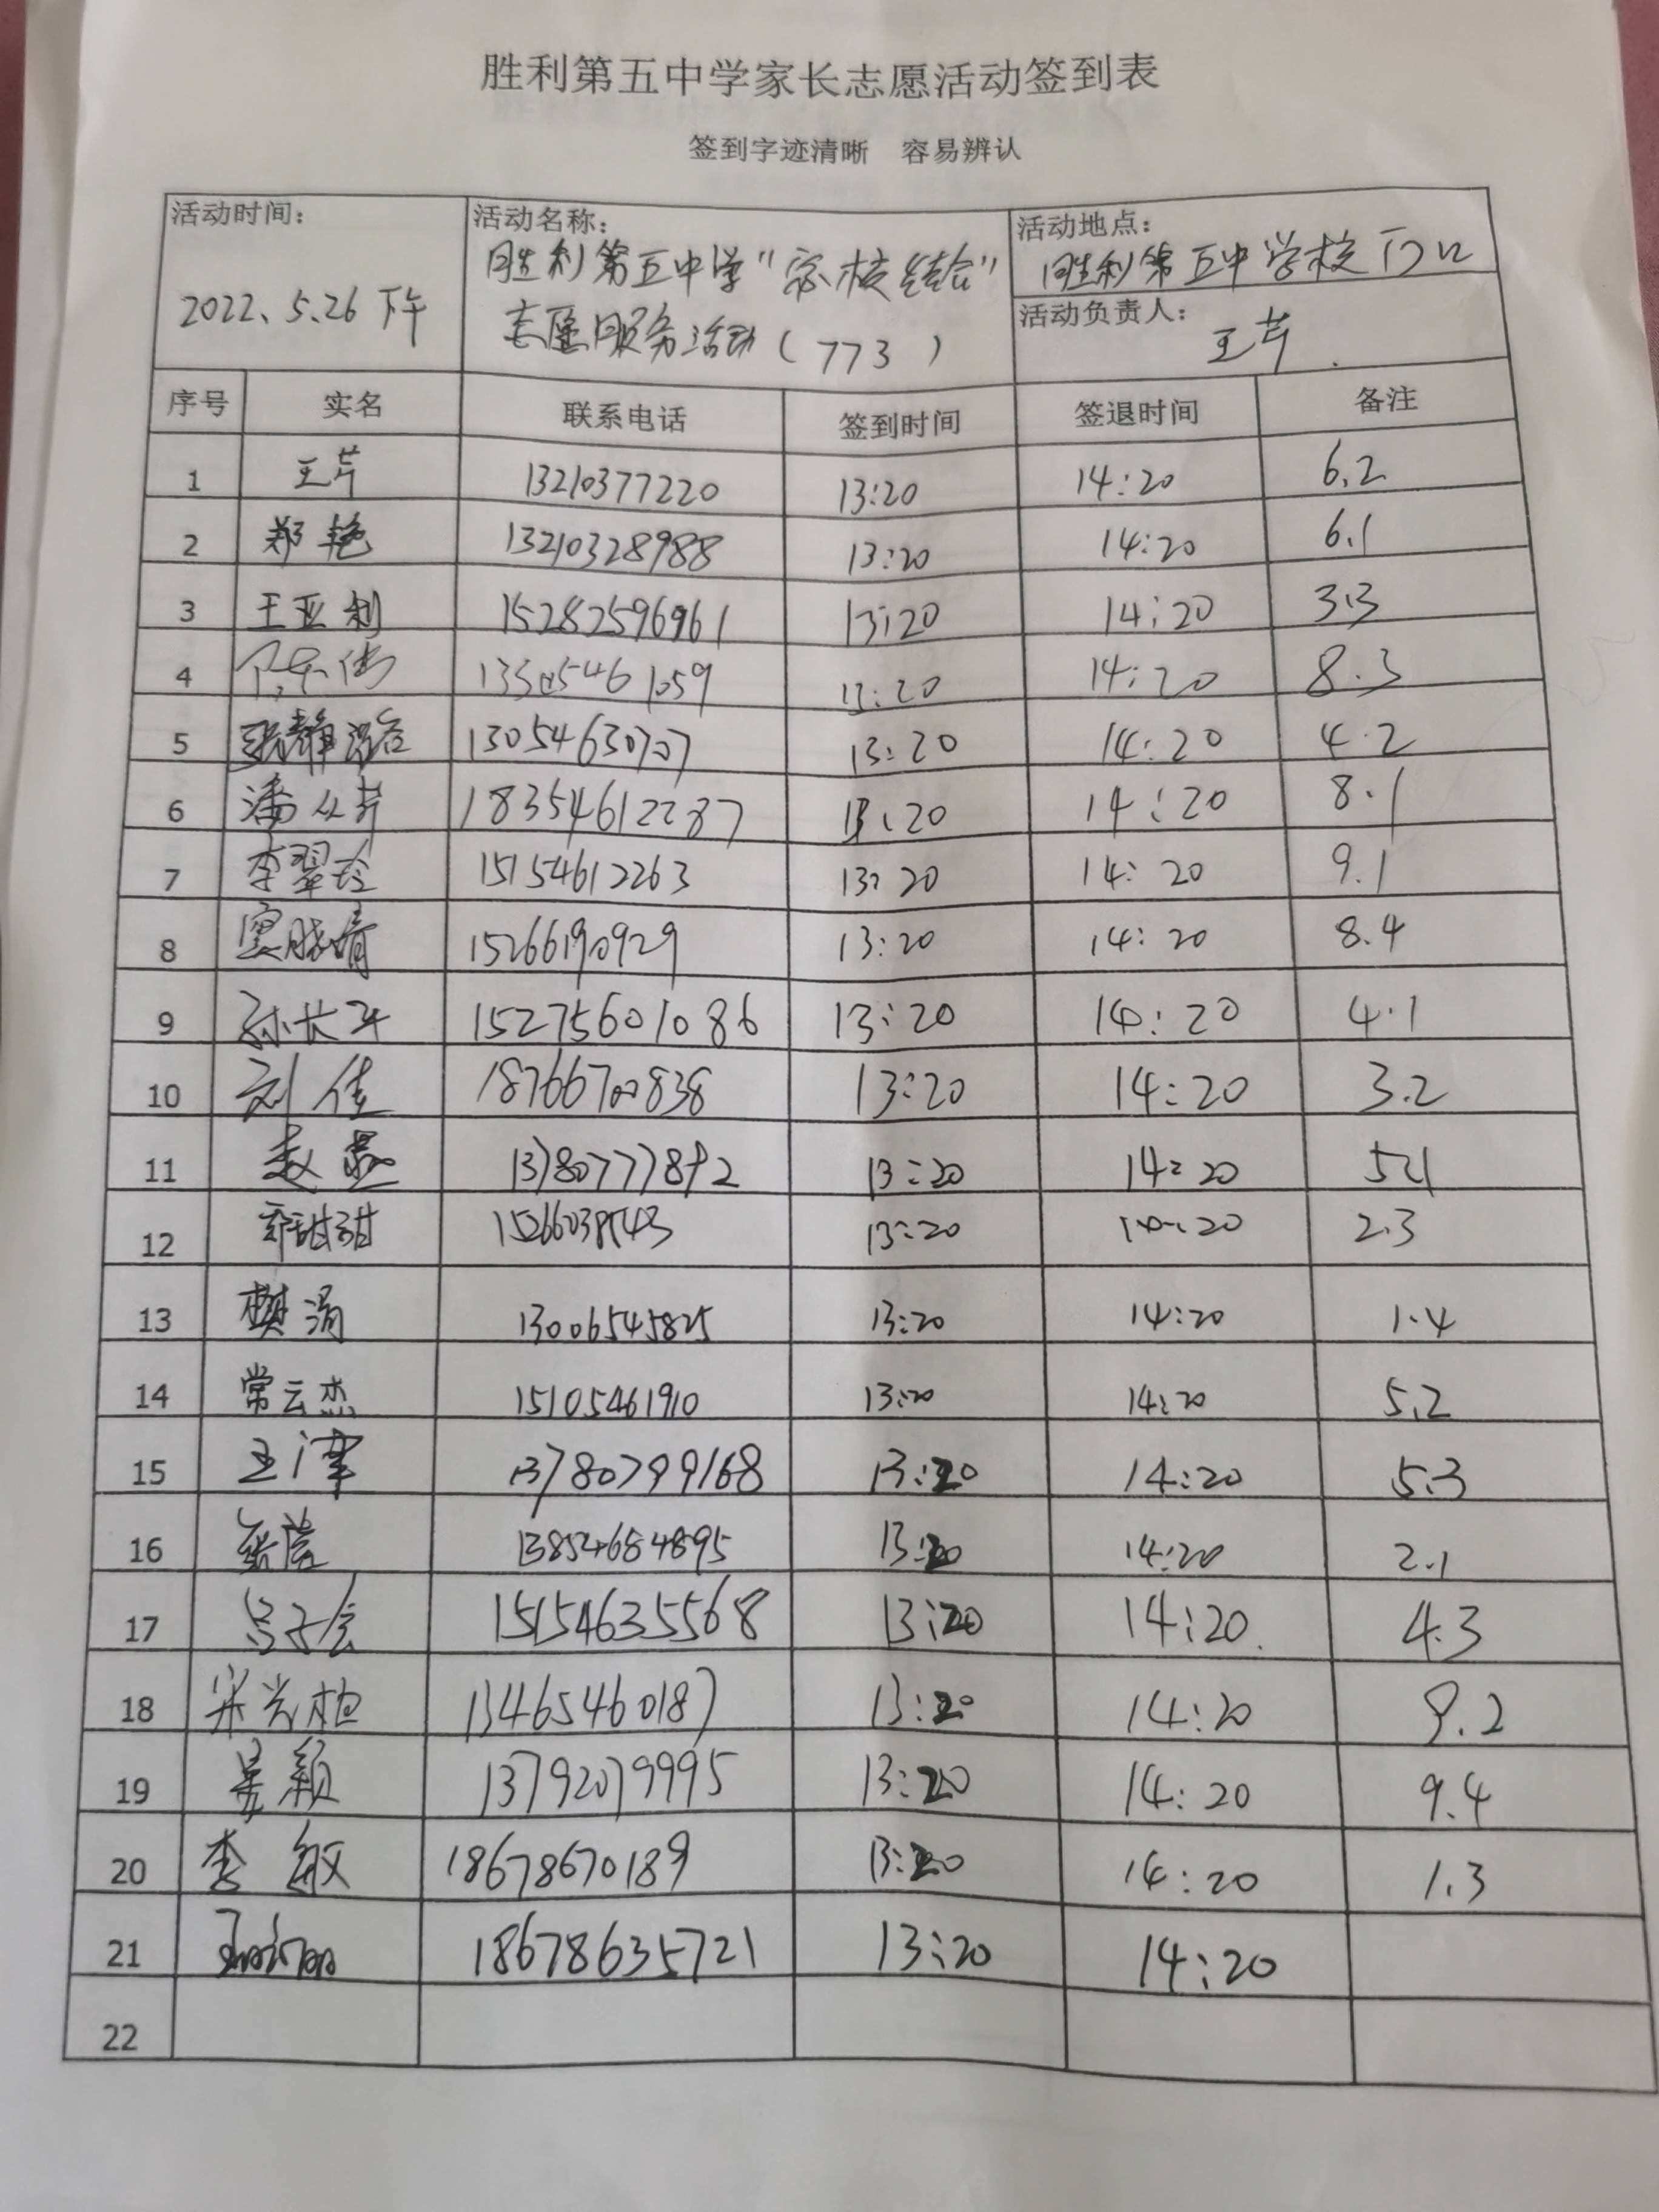 胜利第五中学家长志愿活动签到表
签到字迹清晰 容易辨认
活动时间: 2022、5.26 下午
活动名称: 胜利第五中学"家校结合"
志愿服务活动(773)
活动地点: 胜利第五中学校门口
活动负责人: 王芹
序号 实名 联系电话 签到时间 签退时间 备注
1 王芹 13210377220 13:20 14:20 6.2
2 郑艳 13210328988 13:20 14:20 6.1
3 王亚利 15282596961 13:20 14:20 3.3
4 13:20 14:20 8.3
5 张静 13054630707 13:20 14:20 4.2
6 潘从芹 18354612287 13:20 14:20 8.1
7 李翠玲 15154612263 13:20 14:20 9.1
8 窦晓倩 15266190929 13:20 14:20 8.4
9 孙长平 15275601086 13:20 14:20 4.1
10 刘佳 18766700838 13:20 14:20 3.2
11 赵 13780777892 13:20 14:20 5.1
12 甜甜 13:20 14:20 2.3
13 樊娟 13006545825 13:20 14:20 1.4
14 常云杰 15105461910 13:20 14:20 5.2
15 王津 13780799168 13:20 14:20 5.3
16 张营 13854684895 13:20 14:20 2.1
17 吕子会 15154635568 13:20 14:20 4.3
18 宋光柏 13465460187 13:20 14:20 9.2
19 吴颖 13792079995 13:20 14:20 9.4
20 李敏 18678670189 13:20 14:20 1.3
21 18678635721 13:20 14:20
22